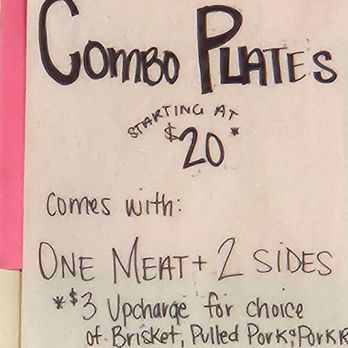 Combo Plates
STARTING AT
$20*
Comes with:
ONE MEAT + 2 SIDES
*$3 Upcharge for choice
of Brisket, Pulled Pork, & Pork R